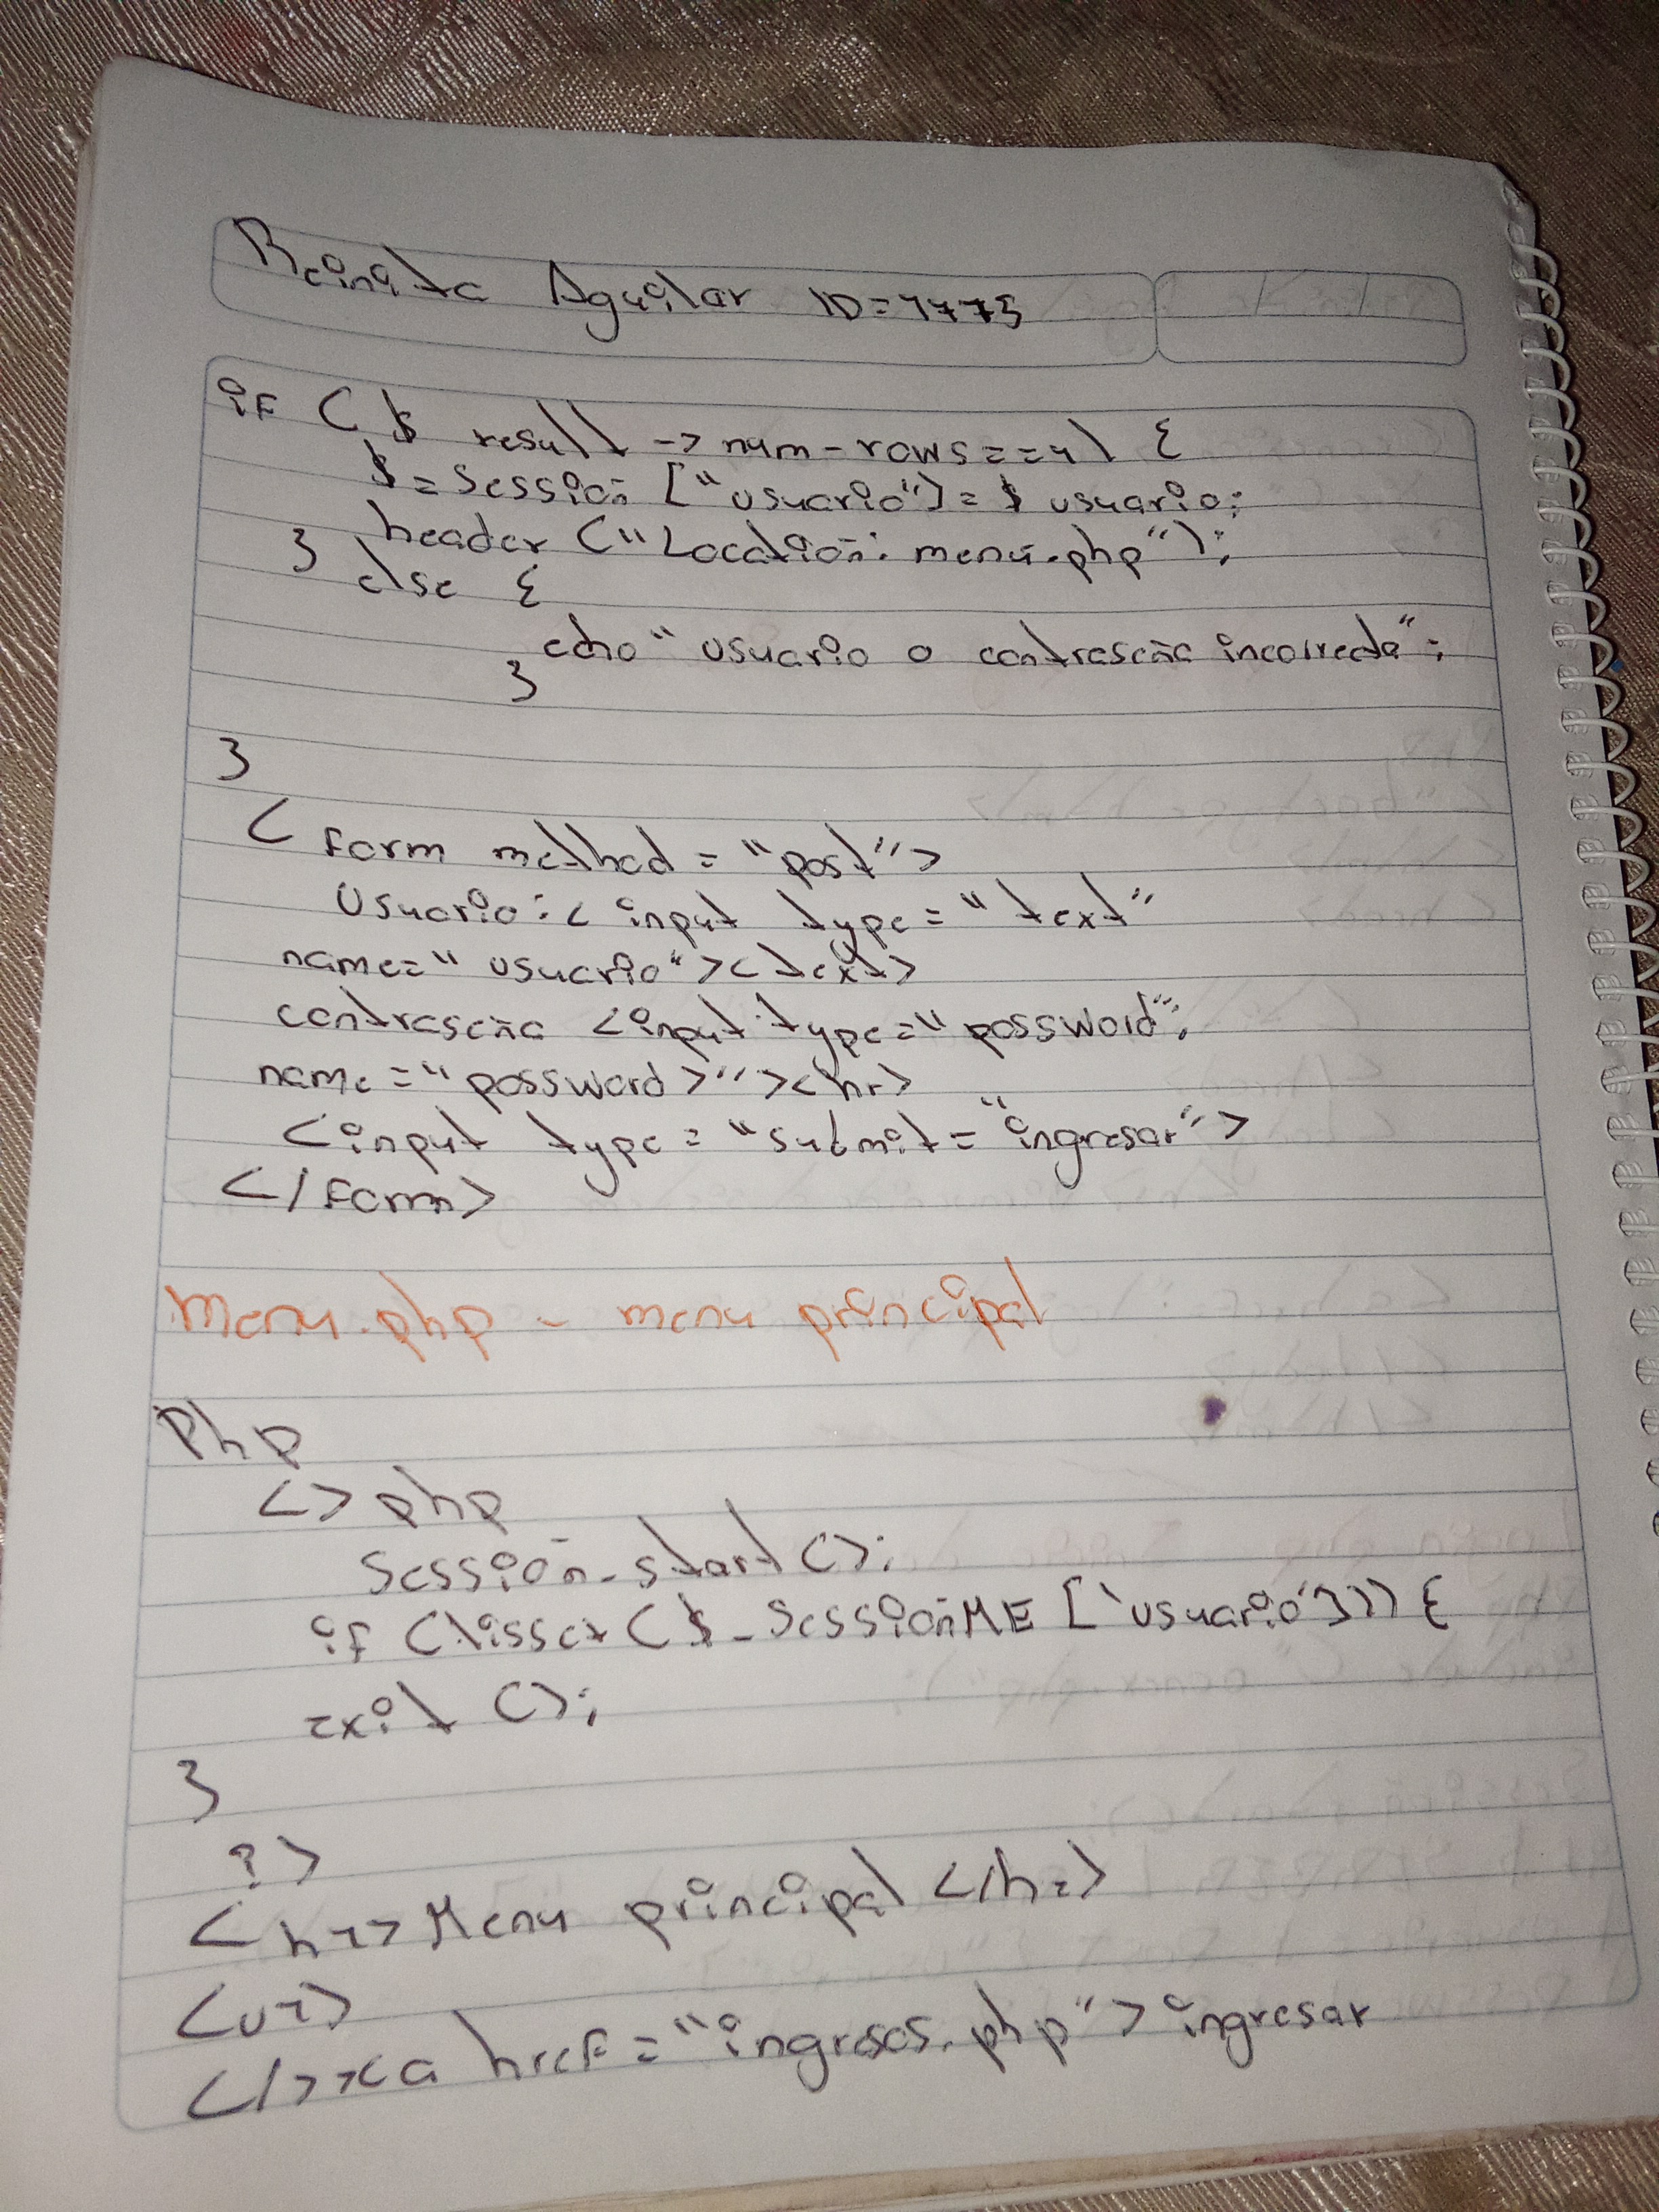 Reinita Aguilar ID=1773
if ($ result -> num-rows==1) {
$= Session ["usuario"]= $ usuario;
header ("Location: menu.php");
} else {
echo "usuario o contraseña incorrecta";
}
}
< form method = "post">
Usuario:< input type = "text"
name=" usuario"><text>
contraseña <input type=" possword";
name ="possword>"><hr>
<input type = "submit= "ingresar">
</form>
Menu.php - menu principal
Php
<> php
Session_start ();
if (lisset ($_SessionME ['usuario'])) {
exit ();
}
?>
<h1>Menu principal </h2>
<u1>
</>><a href="ingresos.php">ingresar